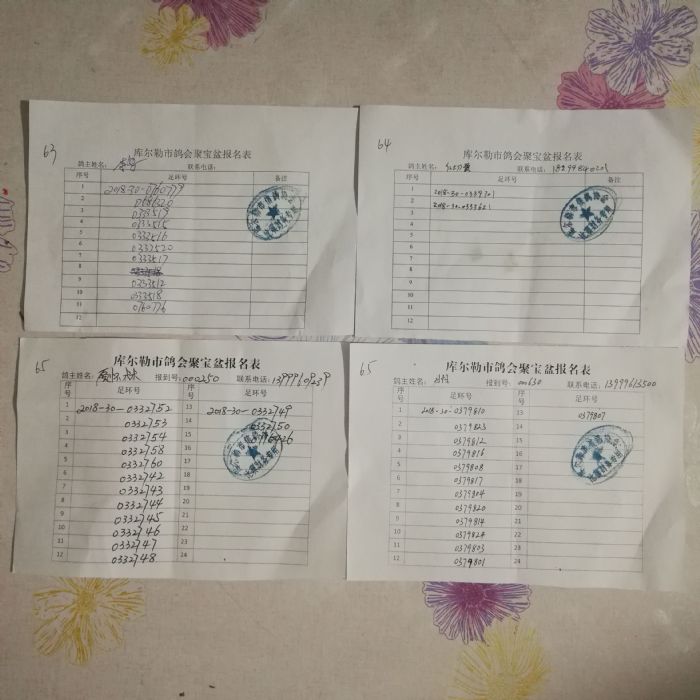 63
库尔勒市鸽会聚宝盆报名表
鸽主姓名: 联系电话:
序号 足环号 备注
1 2018-30-0760779
2
3 0333519
4 0333515
5 0333516
6 0333520
7 0333517
8
9 0333512
10 0333518
11 0760776
12
64
库尔勒市鸽会聚宝盆报名表
鸽主姓名: 联系电话:
序号 足环号 备注
1 2018-30-0339701
2 2018-30-0333621
3
4
5
6
7
8
9
10
11
12
65
库尔勒市鸽会聚宝盆报名表
鸽主姓名: 报到号:000250 联系电话:
序号 足环号 序号 足环号
1 2018-30-0332752 13 2018-30-0332749
2 0332753 14 0332750
3 0332754 15
4 0332758 16
5 0332760 17
6 0332742 18
7 0332743 19
8 0332744 20
9 0332745 21
10 0332746 22
11 0332747 23
12 0332748 24
65
库尔勒市鸽会聚宝盆报名表
鸽主姓名: 报到号:000630 联系电话:13999613500
序号 足环号 序号 足环号
1 2018-30-0379810 13 0379807
2 0379823 14
3 0379812 15
4 0379816 16
5 0379808 17
6 0379817 18
7 0379804 19
8 0379820 20
9 0379814 21
10 0379824 22
11 0379803 23
12 0379801 24